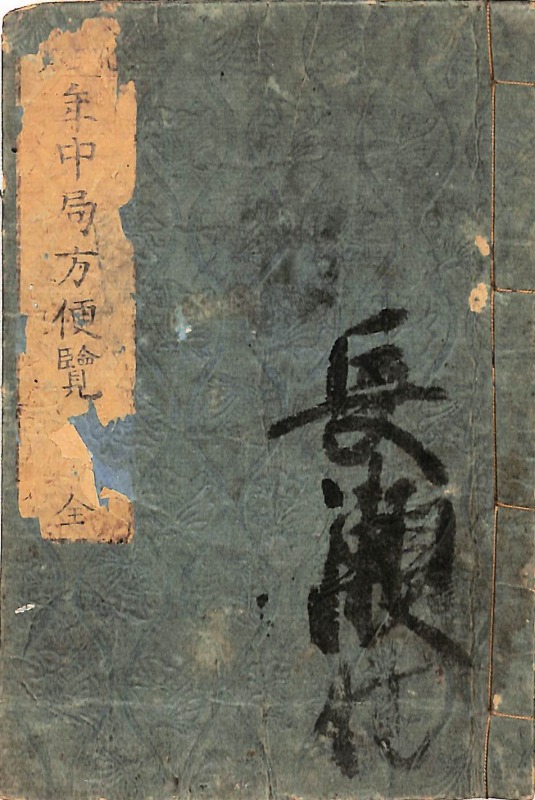 長瀬
年中局方便覽 全